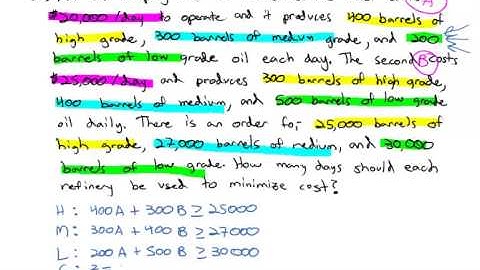 A
$20,000/day to operate and it produces 400 barrels of
high grade, 300 barrels of medium grade, and 200
barrels of low grade oil each day. The second B costs
$25,000/day and produces 300 barrels of high grade,
400 barrels of medium, and 500 barrels of low grade
oil daily. There is an order for, 25,000 barrels of
high grade, 27,000 barrels of medium, and 30,000
barrels of low grade. How many days should each
refinery be used to minimize cost?
H: 400A + 300B ≥ 25000
M: 300A + 400B ≥ 27000
L: 200A + 500B ≥ 30000